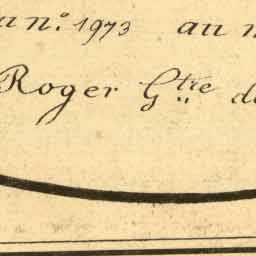 n.º 1973 au
Roger G.tre